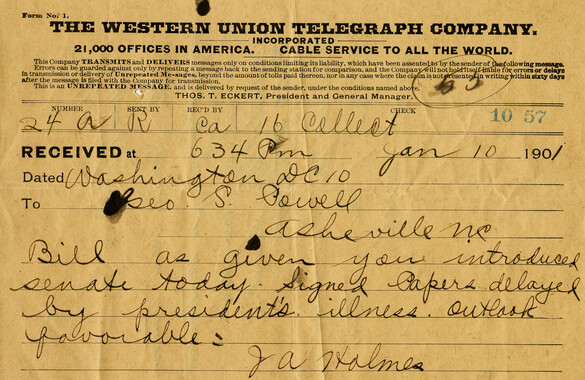 Form No. 1.
THE WESTERN UNION TELEGRAPH COMPANY.
INCORPORATED
21,000 OFFICES IN AMERICA. CABLE SERVICE TO ALL THE WORLD.
This Company TRANSMITS and DELIVERS messages only on conditions limiting its liability, which have been assented to by the sender of the following message.
Errors can be guarded against only by repeating a message back to the sending station for comparison, and the Company will not hold itself liable for errors or delays
in transmission or delivery of Unrepeated Messages, beyond the amount of tolls paid thereon, nor in any case where the claim is not presented in writing within sixty days
after the message is filed with the Company for transmission.
This is an UNREPEATED MESSAGE, and is delivered by request of the sender, under the conditions named above.
THOS. T. ECKERT, President and General Manager.
NUMBER SENT BY REC'D BY CHECK
24 A R Ca 16 Collect 10 57
RECEIVED at 634 Pm Jan 10 1901
Dated Washington DC 10
To Geo. S. Powell
Asheville NC
Bill as given you introduced
senate today. Signed Papers delayed
by presidents. illness. Outlook
favorable =
J A Holmes